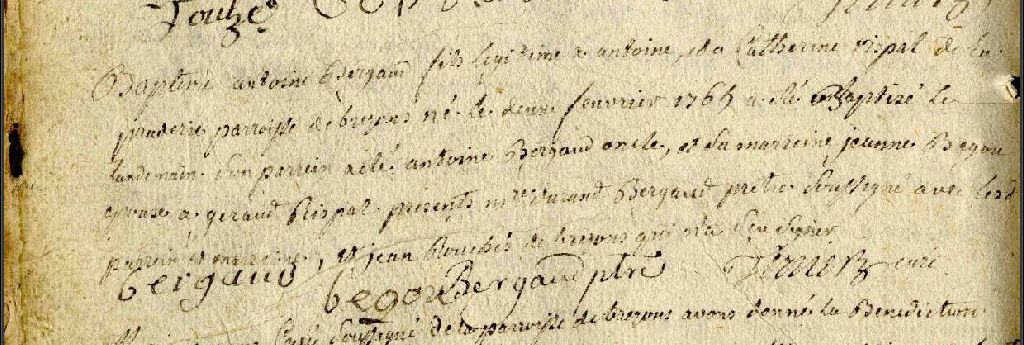 Bapteme antoine Bergaud fils legitime a antoine, et a Catherine rispal de la
parroisse de brezons né le deux fevrier 1765 a été Baptizé le
landemain son parrein a été antoine Bergaud oncle, et sa marreine jeanne Begou
epouse a geraud Rispal presents mre durand Bergaud pretre soussigné avec lesd
parrein et marreine, et jean de brezons qui n'a sçu signer
bergaud begou Bergaud ptre curé
soussigné de la parroisse de brezons avons donné la Benediction